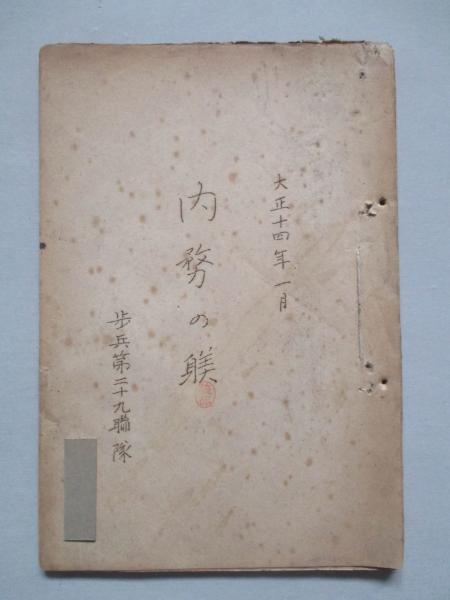 大正十四年一月
内務の躾
歩兵第二十九聯隊